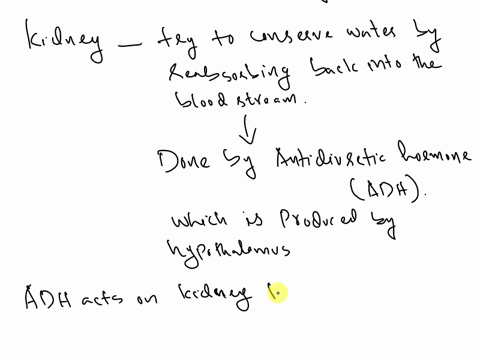 kidney — try to conserve water by
Reabsorbing back into the
blood stream.
Done by Antidiuretic hormone
(ADH).
which is produced by
hypothalamus
ADH acts on kidney